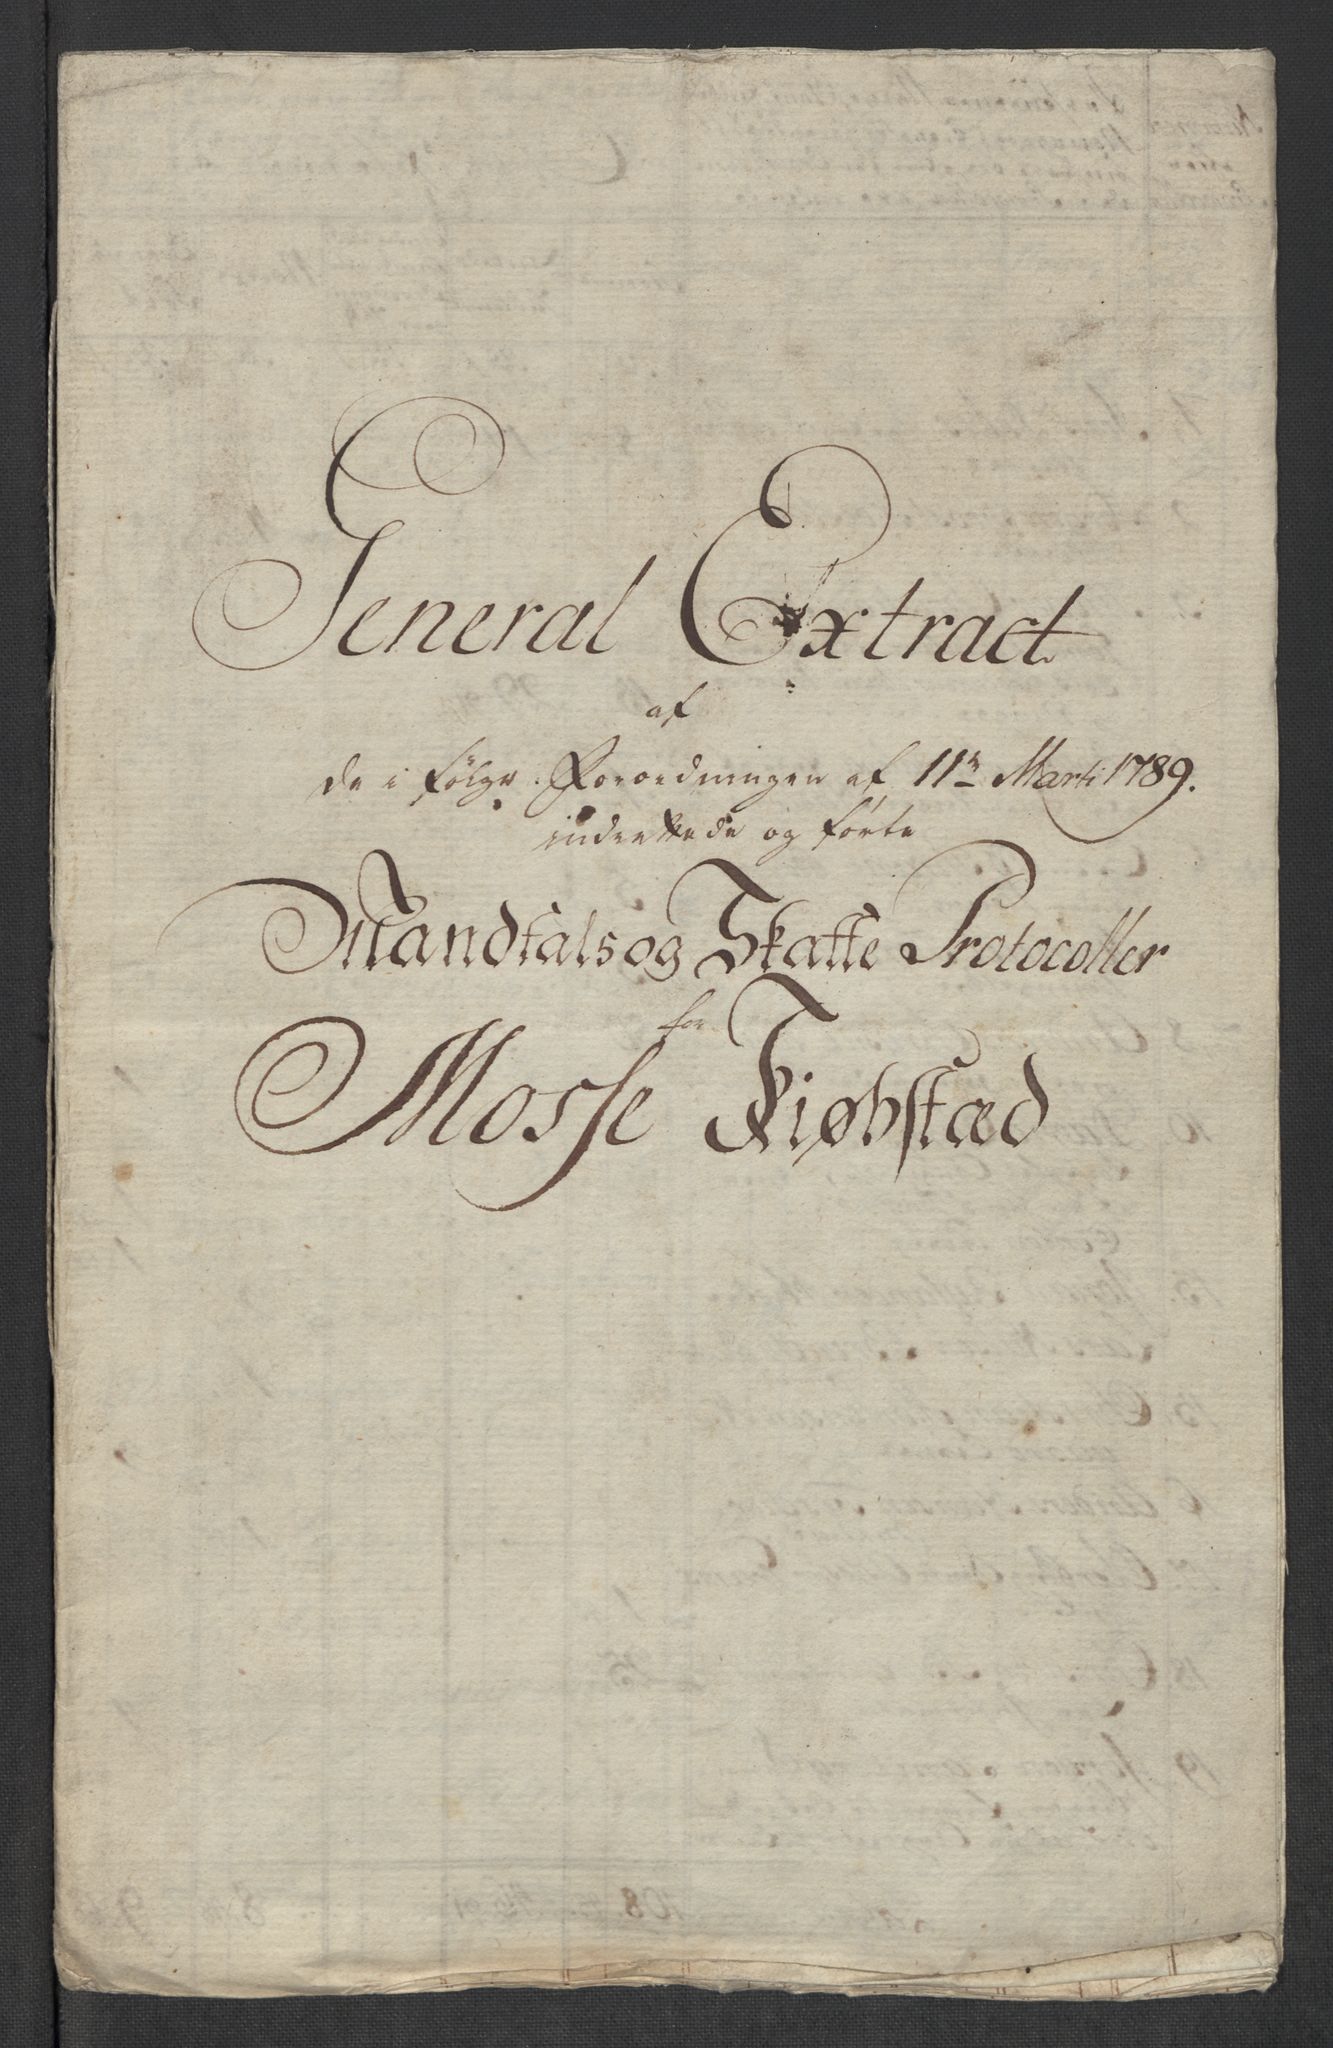 General Extract
af
de i følge Forordningen af 11te Marti 1789.
indrettede og førte
Mandtals og Skatte Protocoller
for
Mosse Kiøbstæd